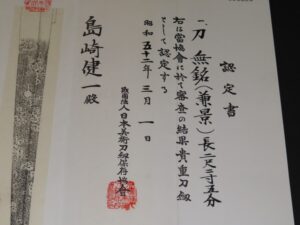 認定書
一、刀 無銘(兼景)長二尺二寸五分
右は當協會に於て審査の結果貴重刀劔
として認定する
昭和五十二年三月一日
財團法人日本美術刀劔保存協會
島崎健一殿